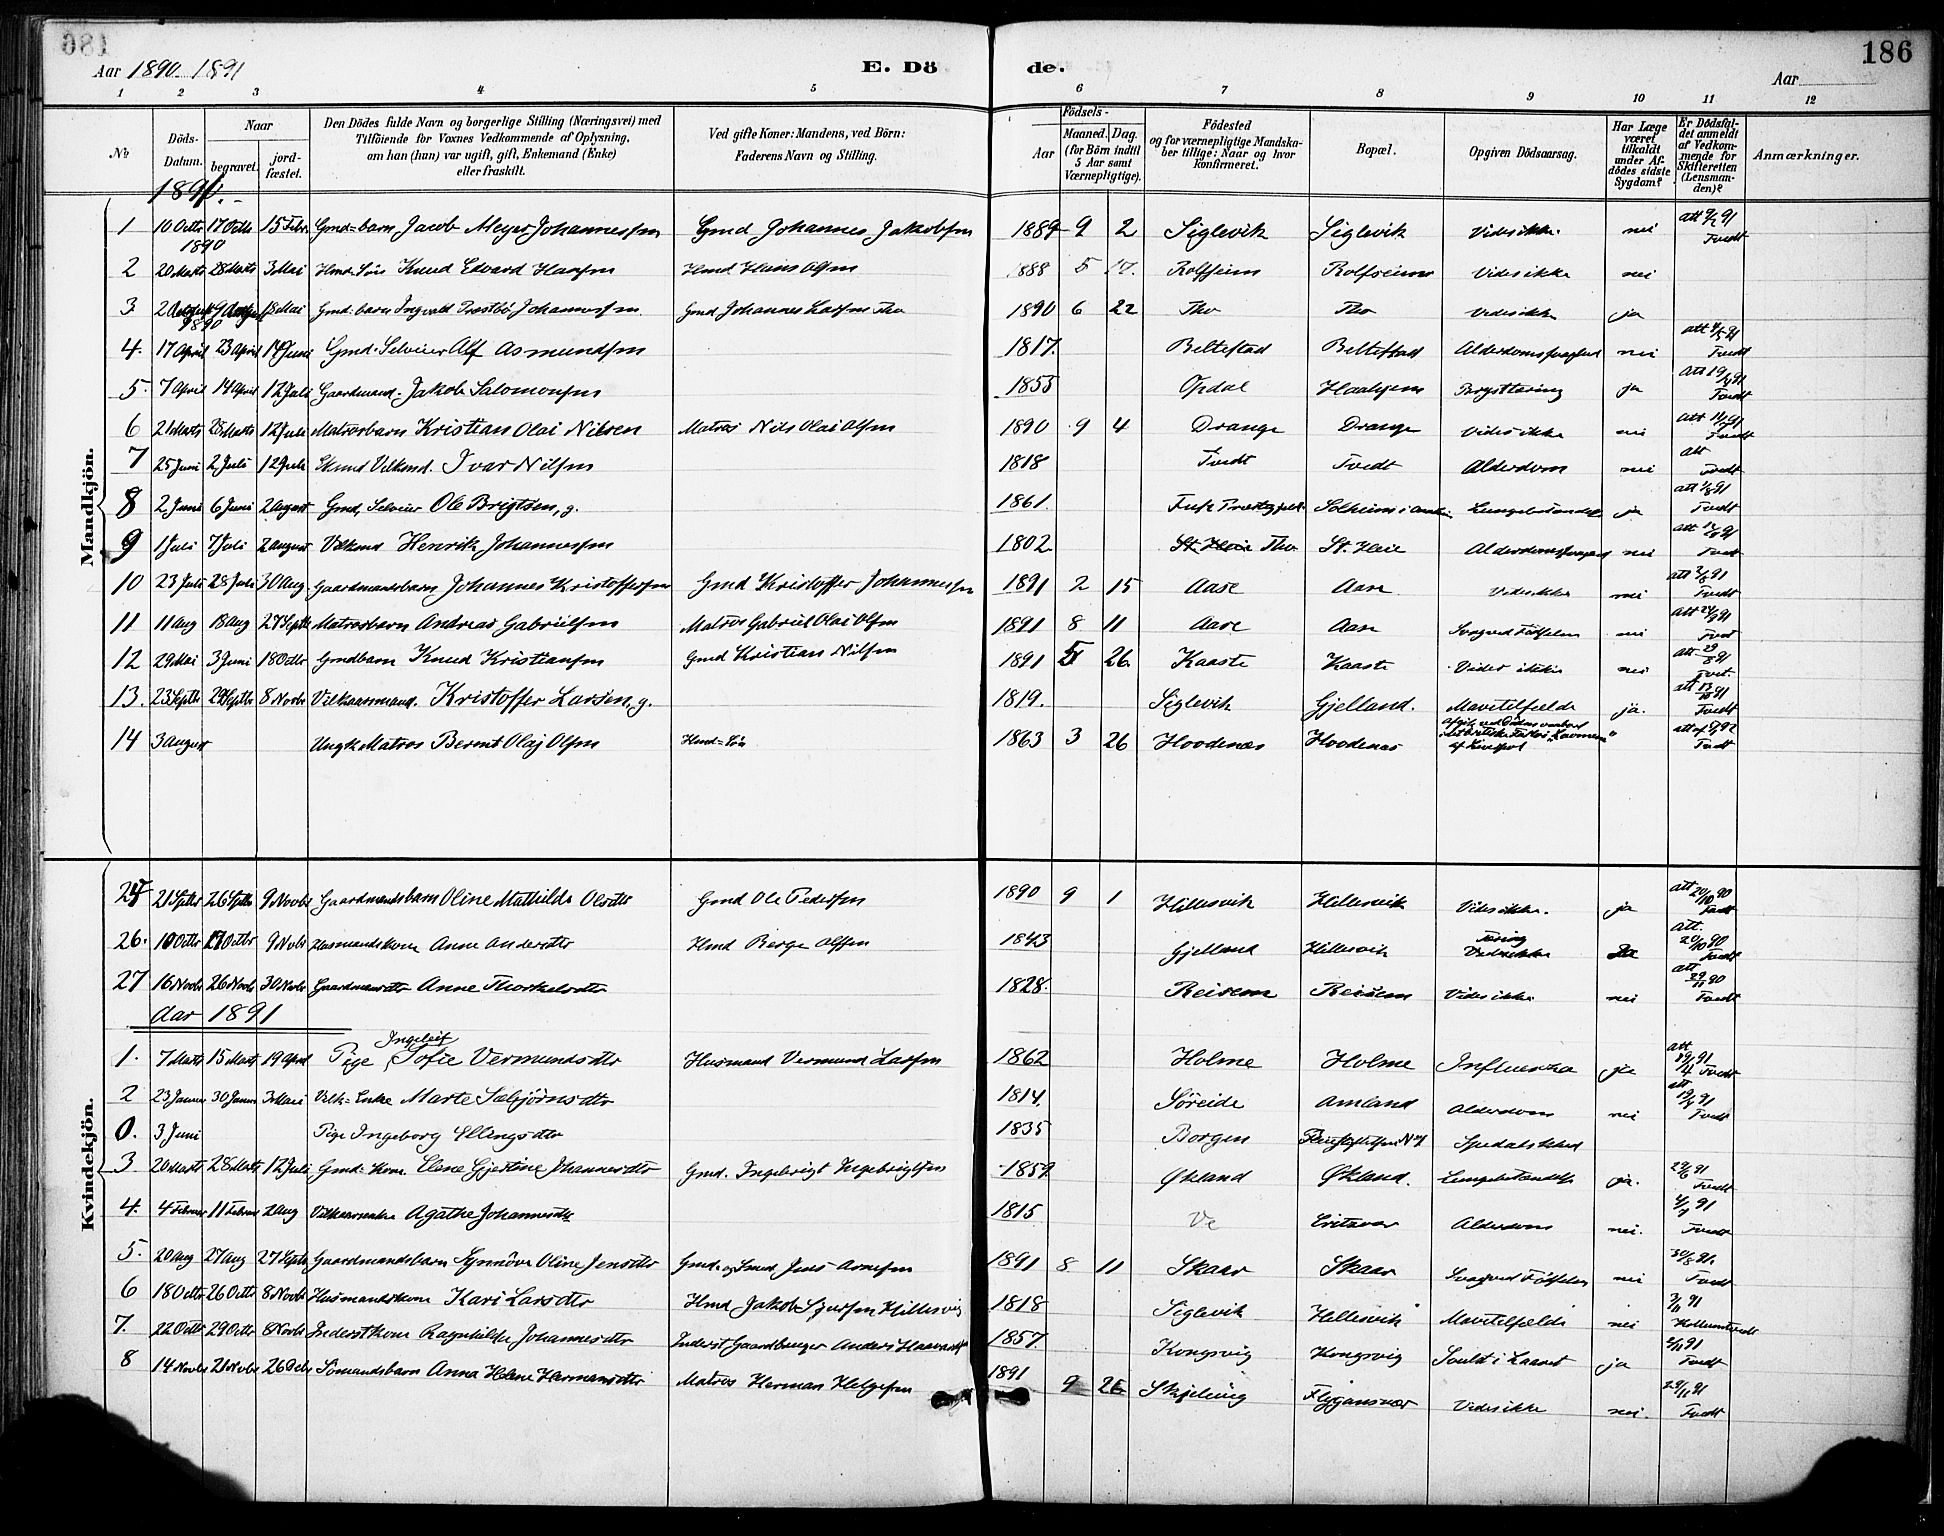 186
Aar 1890. 1891
E. Dö de.
Aar
1 2 3 4 5 6 7 8 9 10 11 12
No
Döds-Datum.
Naar
begravet.
jord-fæstet.
Den Dödes fulde Navn og borgerlige Stilling (Næringsvei) med Tilföiende for Voxnes Vedkommende af Oplysning, om han (hun) var ugift, gift, Enkemand (Enke) eller fraskilt.
Ved gifte Koner: Mandens, ved Börn: Faderens Navn og Stilling.
Födsels-
Aar
Maaned. Dag.
(for Börn indtil 5 Aar samt Værnepligtige).
Födested og for værnepligtige Mandskaber tillige: Naar og hvor konfirmeret.
Bopæl.
Opgiven Dödsaarsag.
Har Læge været tilkaldt under Afdödes sidste Sygdom?
Er Dödsfaldet anmeldt af Vedkommende for Skifteretten (Lensmanden)?
Anmærkninger.
Mandkjön.
1891.
1 10 Octbr 1890 17 Octb 15 Febr. Gmd=barn Jacob Meyer Johannessen Gmd Johannes Jakobsen 1889 9 2 Siglevik Siglevik Vides ikke. nei att 9/2 91 Tvedt
2 20 Marts 28 Marts 3 Mai Hmd. Søn Knud Edvard Hansen Hmd. Hans Olsen 1888 5 17. Rolfseim Rolfseim Vides ikke nei
3. 1890 18 Mai Gmd: barn Ingvald Præstbö Johannessen Gmd Johannes Larsen Tho 1890 6 22 Tho Tho Vides ikke ja
4. 17 April 23 April 14 Juni Gmd. Selveier Alf Asmundsen 1817. Beltestad Beltestad nei Tvedt
5. 7 April 14 April 12 Juli Gaardmand. Jakob Salomonsen 1855 Opdal Brysttæring ja Att 19/4 91 Tvedt
6 21 Marts 28 Marts 12 Juli Matrosbarn Kristian Olai Nilsen Matros Nils Olai Olsen 1890 9 4 Drange Drange Vides ikke nei Tvedt
7 25 Juni 2 Juli 12 Juli Vilkmd. Ivar Nilsen 1818 Tvedt Tvedt Alderdom nei att Tvedt
8 2 Juni 6 Juni 2 August Gmd, Selveier Ole Brigtsen, g. 1861. Solheim i ja Tvedt
9 1 Juli 7 Juli 2 August Vilkmd Henrik Johannessen 1802. Tho nei Tvedt
10 23 Juli 28 Juli 30 Aug. Gaardmandsbarn Johannes Kristoffersen Gmd Kristoffer Johannessen 1891 2 15 Aase Aase Vides ikke nei Tvedt
11 11 Aug 18 Aug 27 Septb Matrosbarn Andreas Gabrielsen Matros Gabriel Olai Olsen 1891 8 11 Aase Aase Svag ved Fødselen nei Tvedt
12 29 Mai 3 Juni 18 Octbr Gmdbarn Knud Kristiansen Gmd Kristian Nilsen 1891 5 26 Kaaste Kaaste Vides ikke nei
13. 23 Septb 29 Septb 8 Novbr Vilkaarsmand. Kristoffer Larsen, g. 1819. Siglevik Gjelland. Mavetilfælde ja. att 13/10 91 Tvedt
14 3 August Ungk Matros Bernt Olaj Olsen Hmd=Søn 1863 3 26 Hoodenæs Hoodenæs Tvedt
Kvindekjön.
25 21 Septbr 26 Septb 9 Novbr Gaardmandsbarn Oline Mathilde Olsdtr Gmd Ole Pedersen 1890 9 1 Hillesvik Hillesvik Vides ikke. ja att 20/10 90 Tvedt
26. 10 Octbr 17 Octbr 9 Nvbr Husmandskone Anne Andersdtr Hmd Berge Olsen 1843 Gjelland Hillesvik Tæring att. 20/10 90 Tvedt
27 16 Novbr 26 Novbr 30 Novbr Anne Thorkelsdtr 1828. Reisem Reisem Vides ikke nei att 29/11 90 Tvedt
Aar 1891
1. 7 Marts 15 Marts 19 April Pige Ingeleif Sofie Vermundsdtr Husmand Vermund Larsen 1862 Holme Holme Influenza ja att 19/4 91 Tvedt
2 23 Januar 30 Januar 3 Mai Vilk=Enke Marte Sæbjørnsdtr 1814. Søreide Amland Alderdom nei att 19/4 91 Tvedt
0. 3 Juni Pige Ingeborg Ellingsdtr 1835 Borgen Spedalskhed
3 20 Marts 28 Marts 12 Juli Gmd: kone Elene Gjertine Johannesdtr Gmd. Ingebrigt Ingebrigtsen 1859 Økland Økland. Lungebetændelse ja. 29/6 91 Tvedt
4. 4 Februar 11 Februar 2 Aug Vilkaarsenke Agathe Johannesdtr 1815 Ve Alderdom nei. Tvedt
5. 20 Aug 27 Aug 27 Septb Gaardmandsbarn Synnöve Oline Jensdtr Gmd. og Smed Jens 1891 8 11 Skaar Skaar Svag ved Fødselen nei 30/8 91. Tvedt
6 18 Octbr 26 Octbr 8 Novbr Husmandskone Kari Larsdtr Hmd Jakob Sjursen Hillesvig 1818 Siglevik Hillesvik Mavetilfælde nei 3/11 91
7. 22 Octbr 29 Octbr 8 Novbr Inderstkone Ragnhilde Johannesdtr Inderst Gaardbruger Anders 1857. Kongsvig Kongsvig ja Tvedt
8 14 Novbr 21 Novbr 26 Decbr Sömandsbarn Anna Helene Hermansdtr Matros Herman Helgesen 1891 9 26 Skjelevig Flygansvær Vides ikke nei. 29/11 91 Tvedt